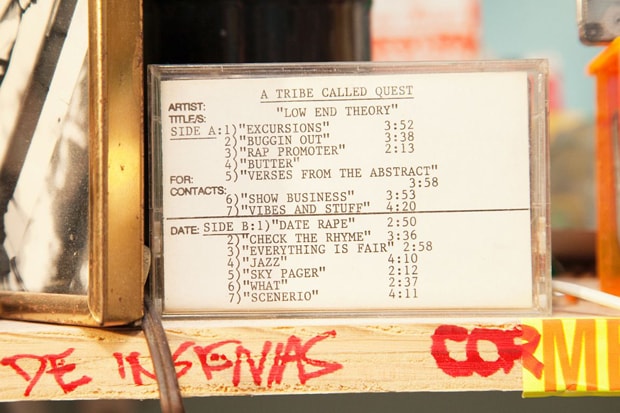 A TRIBE CALLED QUEST
ARTIST:
TITLE/S: "LOW END THEORY"
SIDE A:1)"EXCURSIONS" 3:52
2)"BUGGIN OUT" 3:38
3)"RAP PROMOTER" 2:13
4)"BUTTER"
5)"VERSES FROM THE ABSTRACT"
3:58
FOR:
CONTACTS:
6)"SHOW BUSINESS" 3:53
7)"VIBES AND STUFF" 4:20
DATE: SIDE B:1)"DATE RAPE" 2:50
2)"CHECK THE RHYME" 3:36
3)"EVERYTHING IS FAIR" 2:58
4)"JAZZ" 4:10
5)"SKY PAGER" 2:12
6)"WHAT" 2:37
7)"SCENERIO" 4:11
DE INSENIAS COR